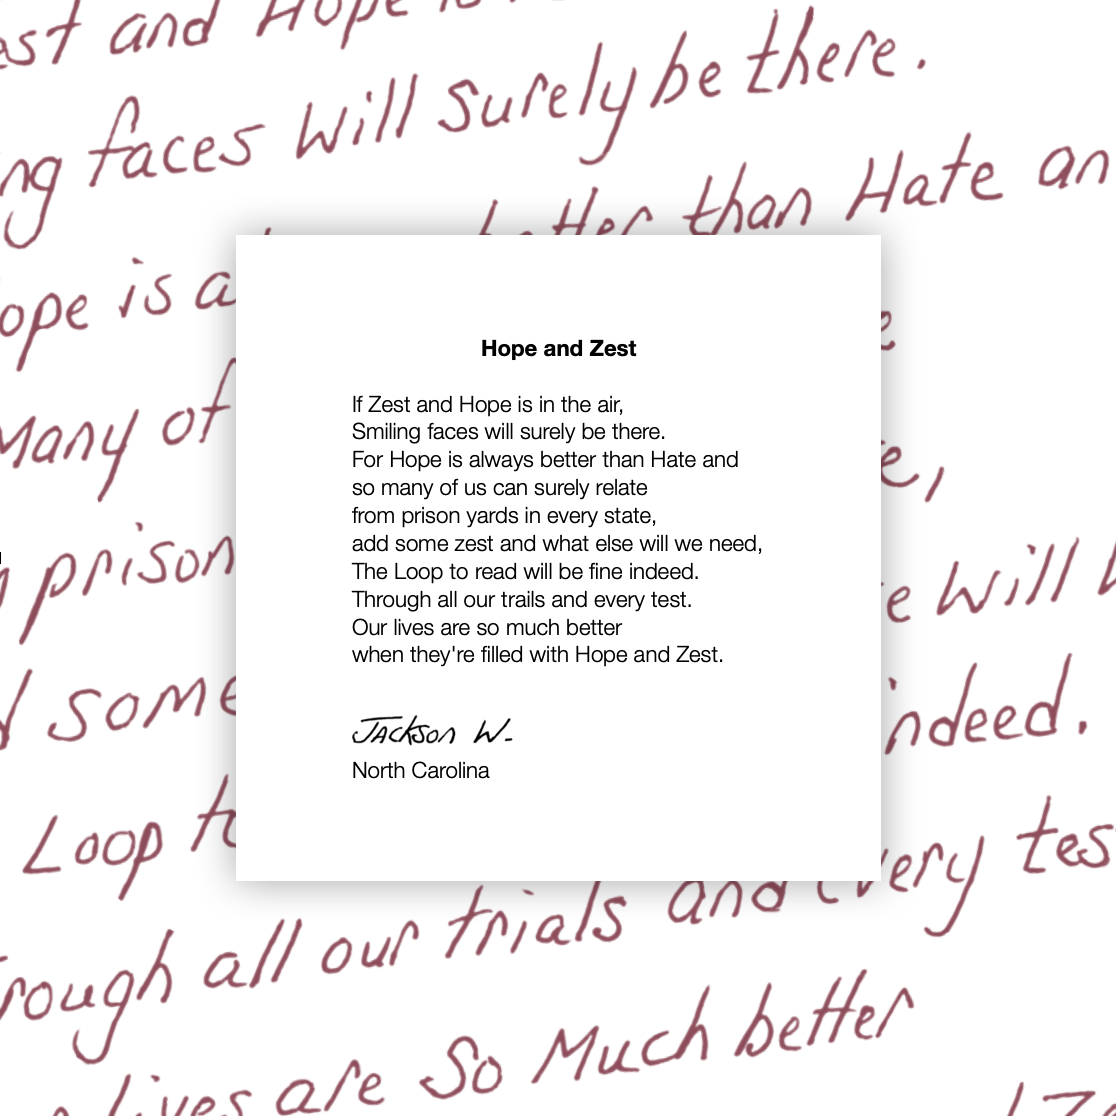 est and Hope is
ng faces will surely be there.
better than Hate an
ope is a
Many of
prison
e will
some
indeed.
Loop to
every tes
rough all our trials and
lives are So Much better
Hope and Zest
If Zest and Hope is in the air,
Smiling faces will surely be there.
For Hope is always better than Hate and
so many of us can surely relate
from prison yards in every state,
add some zest and what else will we need,
The Loop to read will be fine indeed.
Through all our trails and every test.
Our lives are so much better
when they're filled with Hope and Zest.
Jackson W.
North Carolina